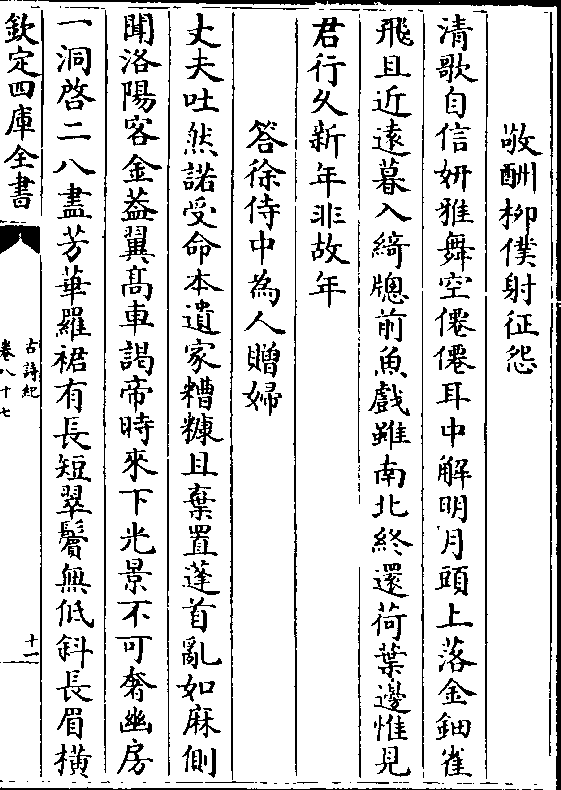 敬酬柳僕射征怨
清歌自信妍雅舞空僊僊耳中解明月頭上落金鈿雀
飛且近遠暮入綺牕前魚戲雖南北終還荷葉邊惟見
君行久新年非故年
答徐侍中為人贈婦
丈夫吐然諾受命本遺家糟糠且棄置蓬首亂如麻側
聞洛陽客金葢翼髙車謁帝時來下光景不可奢幽房
一洞啓二八盡芳華羅裙有長短翠鬢無低斜長眉橫
欽定四庫全書
古詩紀
卷八十七
十一